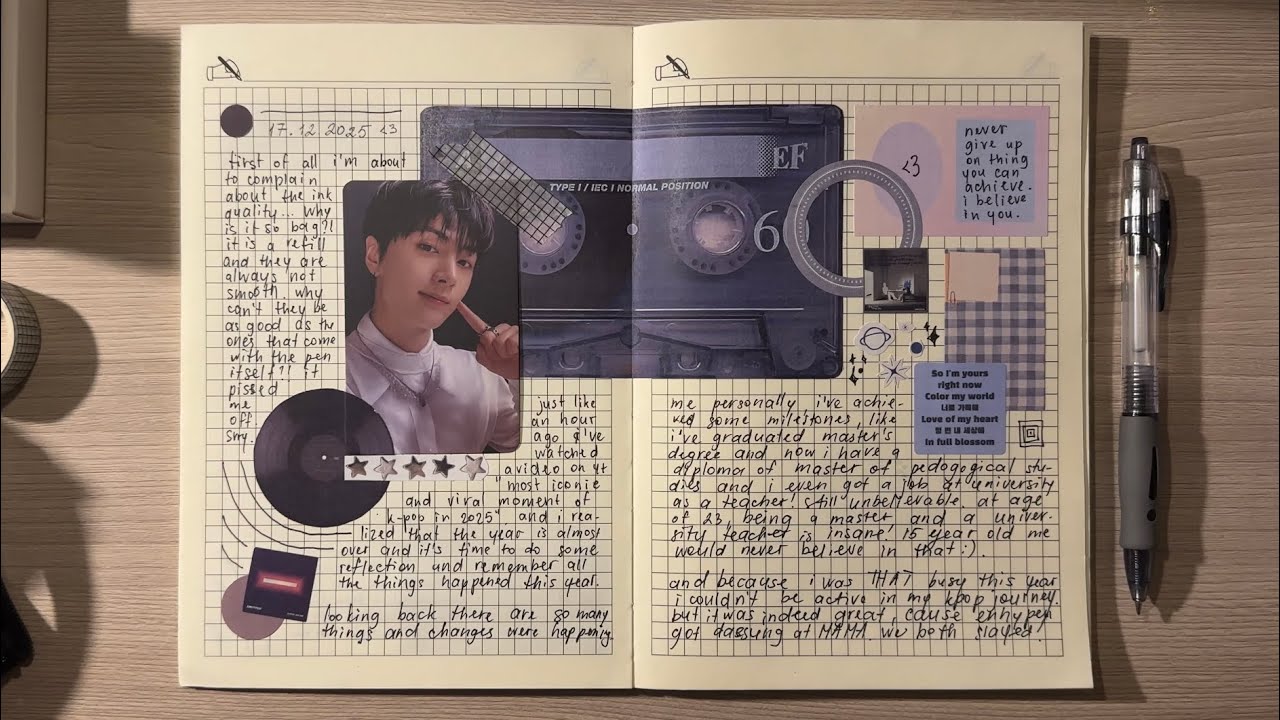 17.12.2025 <3
first of all i'm about
to complain
about the ink
quality... why
is it so bad?!
it is a refill
and they are
always not
smooth why
can't they be
as good as the
ones that come
with the pen
itself?! it
pissed
me
off
sry.
just like
an hour
ago i've
watched
a video on yt
"most iconic
and viral moment of
k-pop in 2025" and i rea-
lized that the year is almost
over and it's time to do some
reflection and remember all
the things happened this year.
looking back there are so many
things and changes were happening
EF
TYPE I / IEC I NORMAL POSITION
6
<3
never
give up
on thing
you can
achieve.
i believe
in you.
So I'm yours
right now
Color my world
너로 가득해
Love of my heart
내 세상에
In full blossom
me personally i've achie-
ved some milestones, like
i've graduated master's
degree and now i have a
diploma of master of pedogogical stu-
dies and i even got a job at university
as a teacher! still unbelievable. at age
of 23, being a master and a univer-
sity teacher is insane! 15 year old me
would never believe in that :).
and because i was THAT busy this year
i couldn't be active in my kpop journey.
but it was indeed great, cause enhypen
got daesung at MAMA. we both slayed!